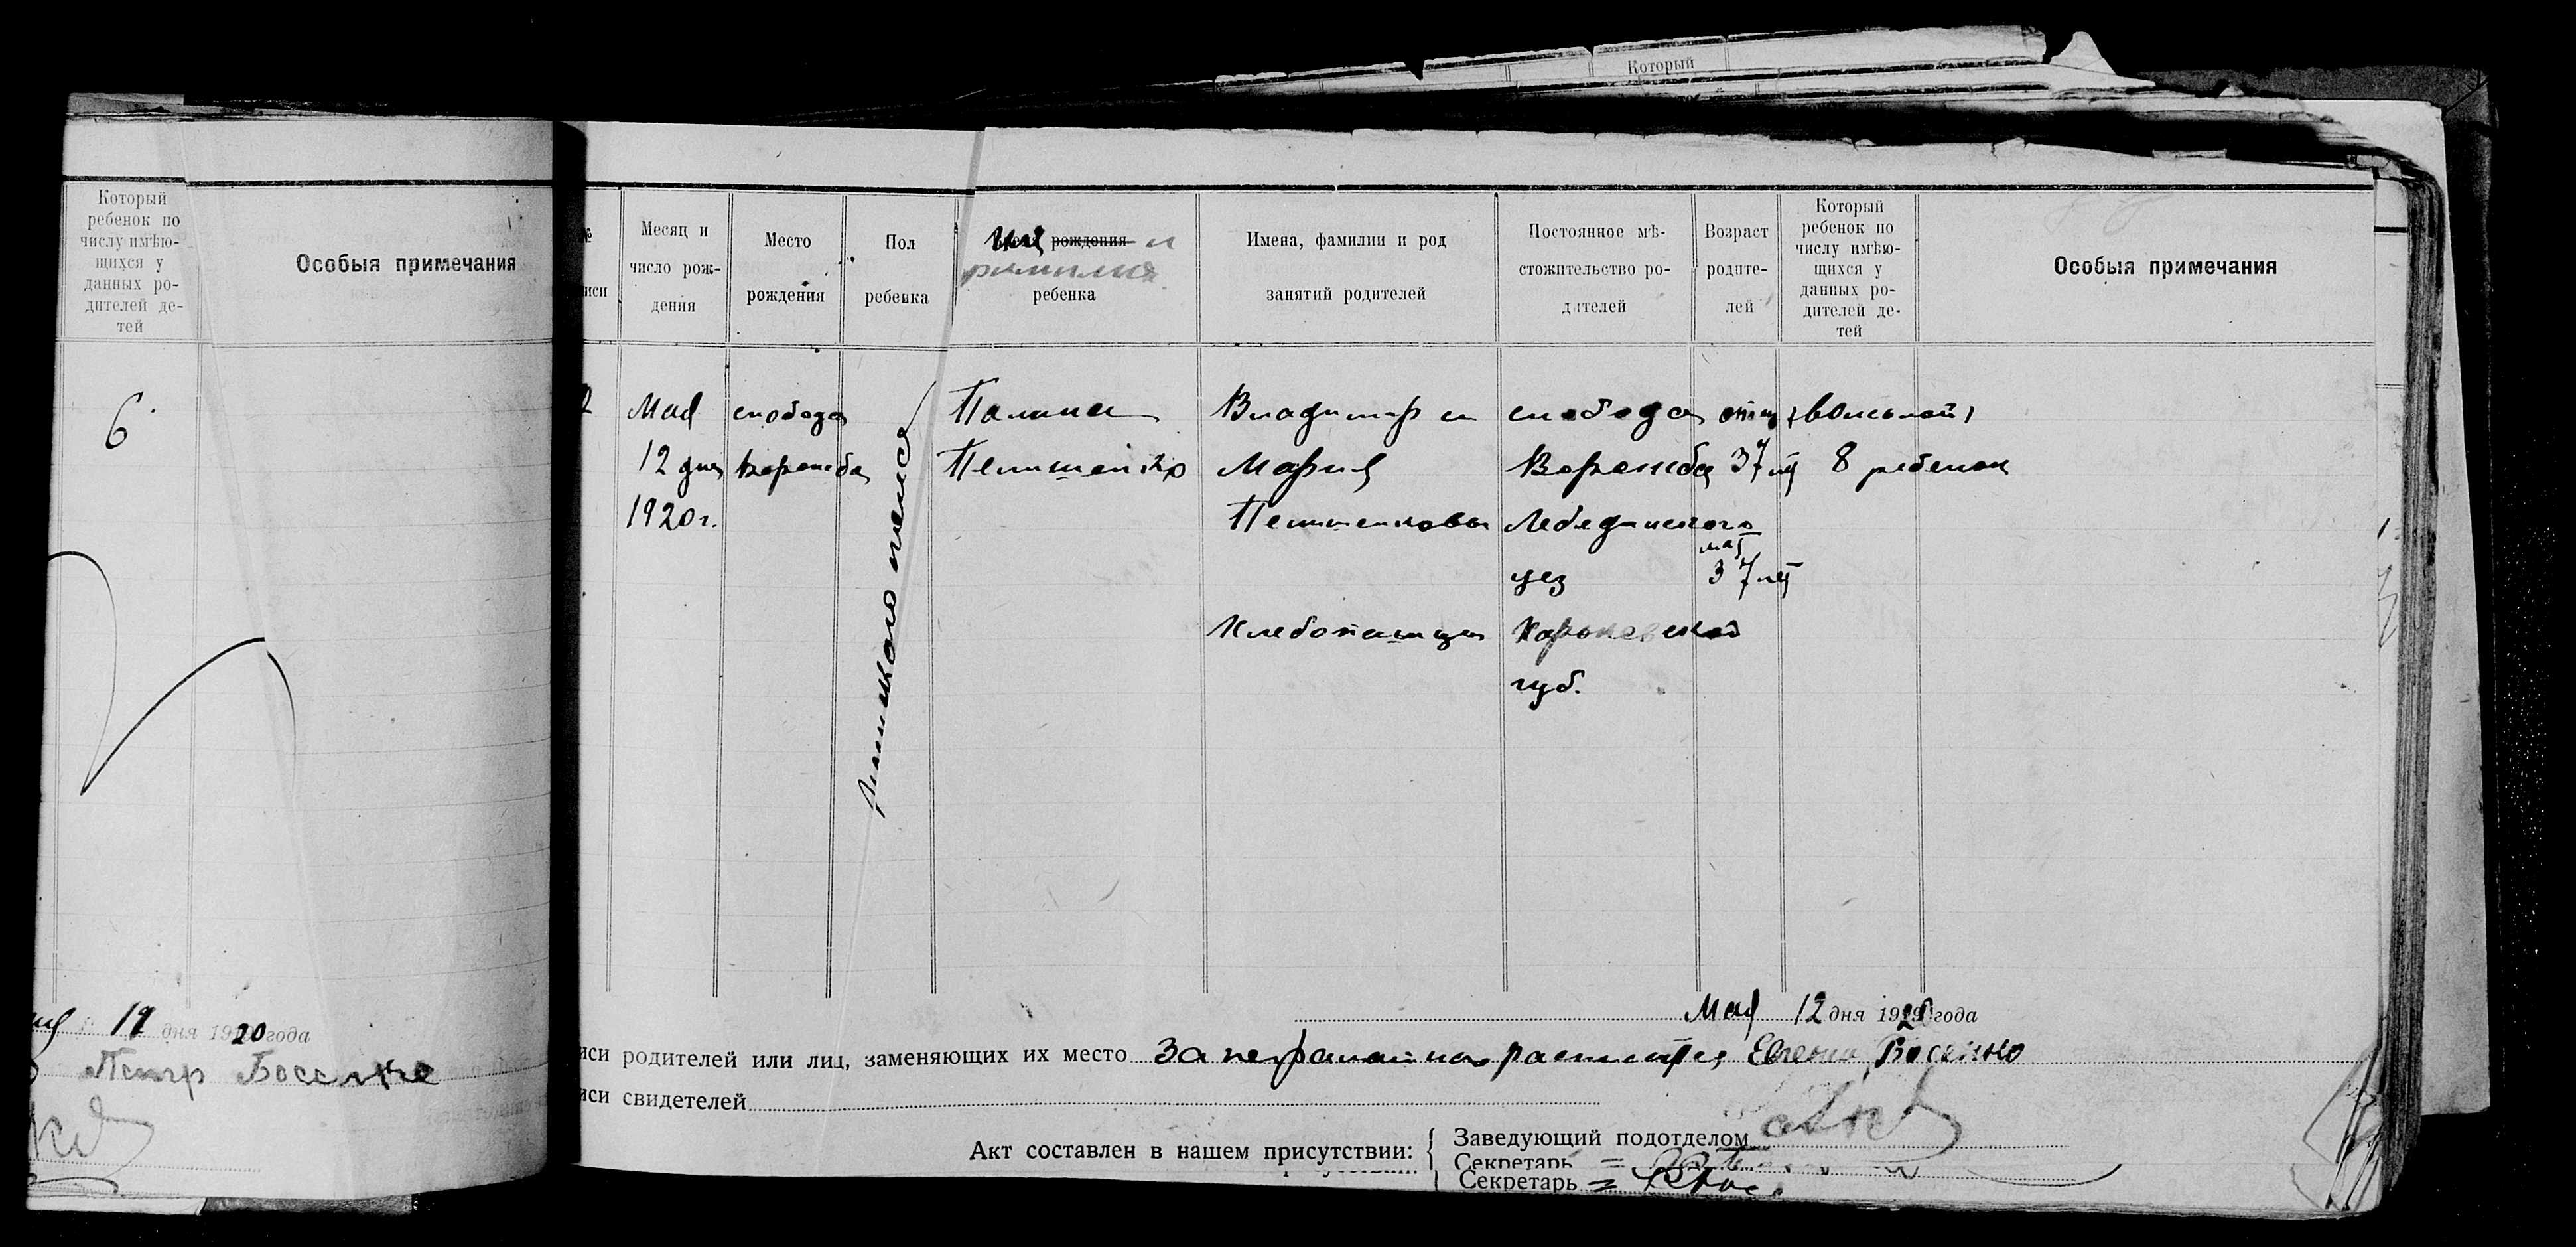 Который
Который
ребенок по
числу имѣю-
щихся у
данных ро-
дителей де-
тей
Особыя примечания
6
19 дня 1920 года
Петр Босенко
№
иси
Месяц и
число рож-
дения
Место
рождения
Пол
ребенка
Имя рождения и
фамилия
ребенка
Имена, фамилии и род
занятий родителей
Постоянное мѣ-
стожительство ро-
дителей
Возраст
родите-
лей
Который
ребенок по
числу имѣю-
щихся у
данных ро-
дителей де-
тей
Особыя примечания
2
Мая
12 дня
1920 г.
слобода
Ворожба
женского пола
Полина
Пелишенко
Владимир и
Мария
Пелишенковы
Хлебопашцы
слобода
Ворожба
Лебединского
уез
Харьковской
губ.
отец
37 лет
мат
37 лет
8 ребенок
Мая 12 дня 1920 года
иси родителей или лиц, заменяющих их место За неграмотного расписался Босенко
иси свидетелей
Акт составлен в нашем присутствии:
Заведующий подотделом
Секретарь
Секретарь